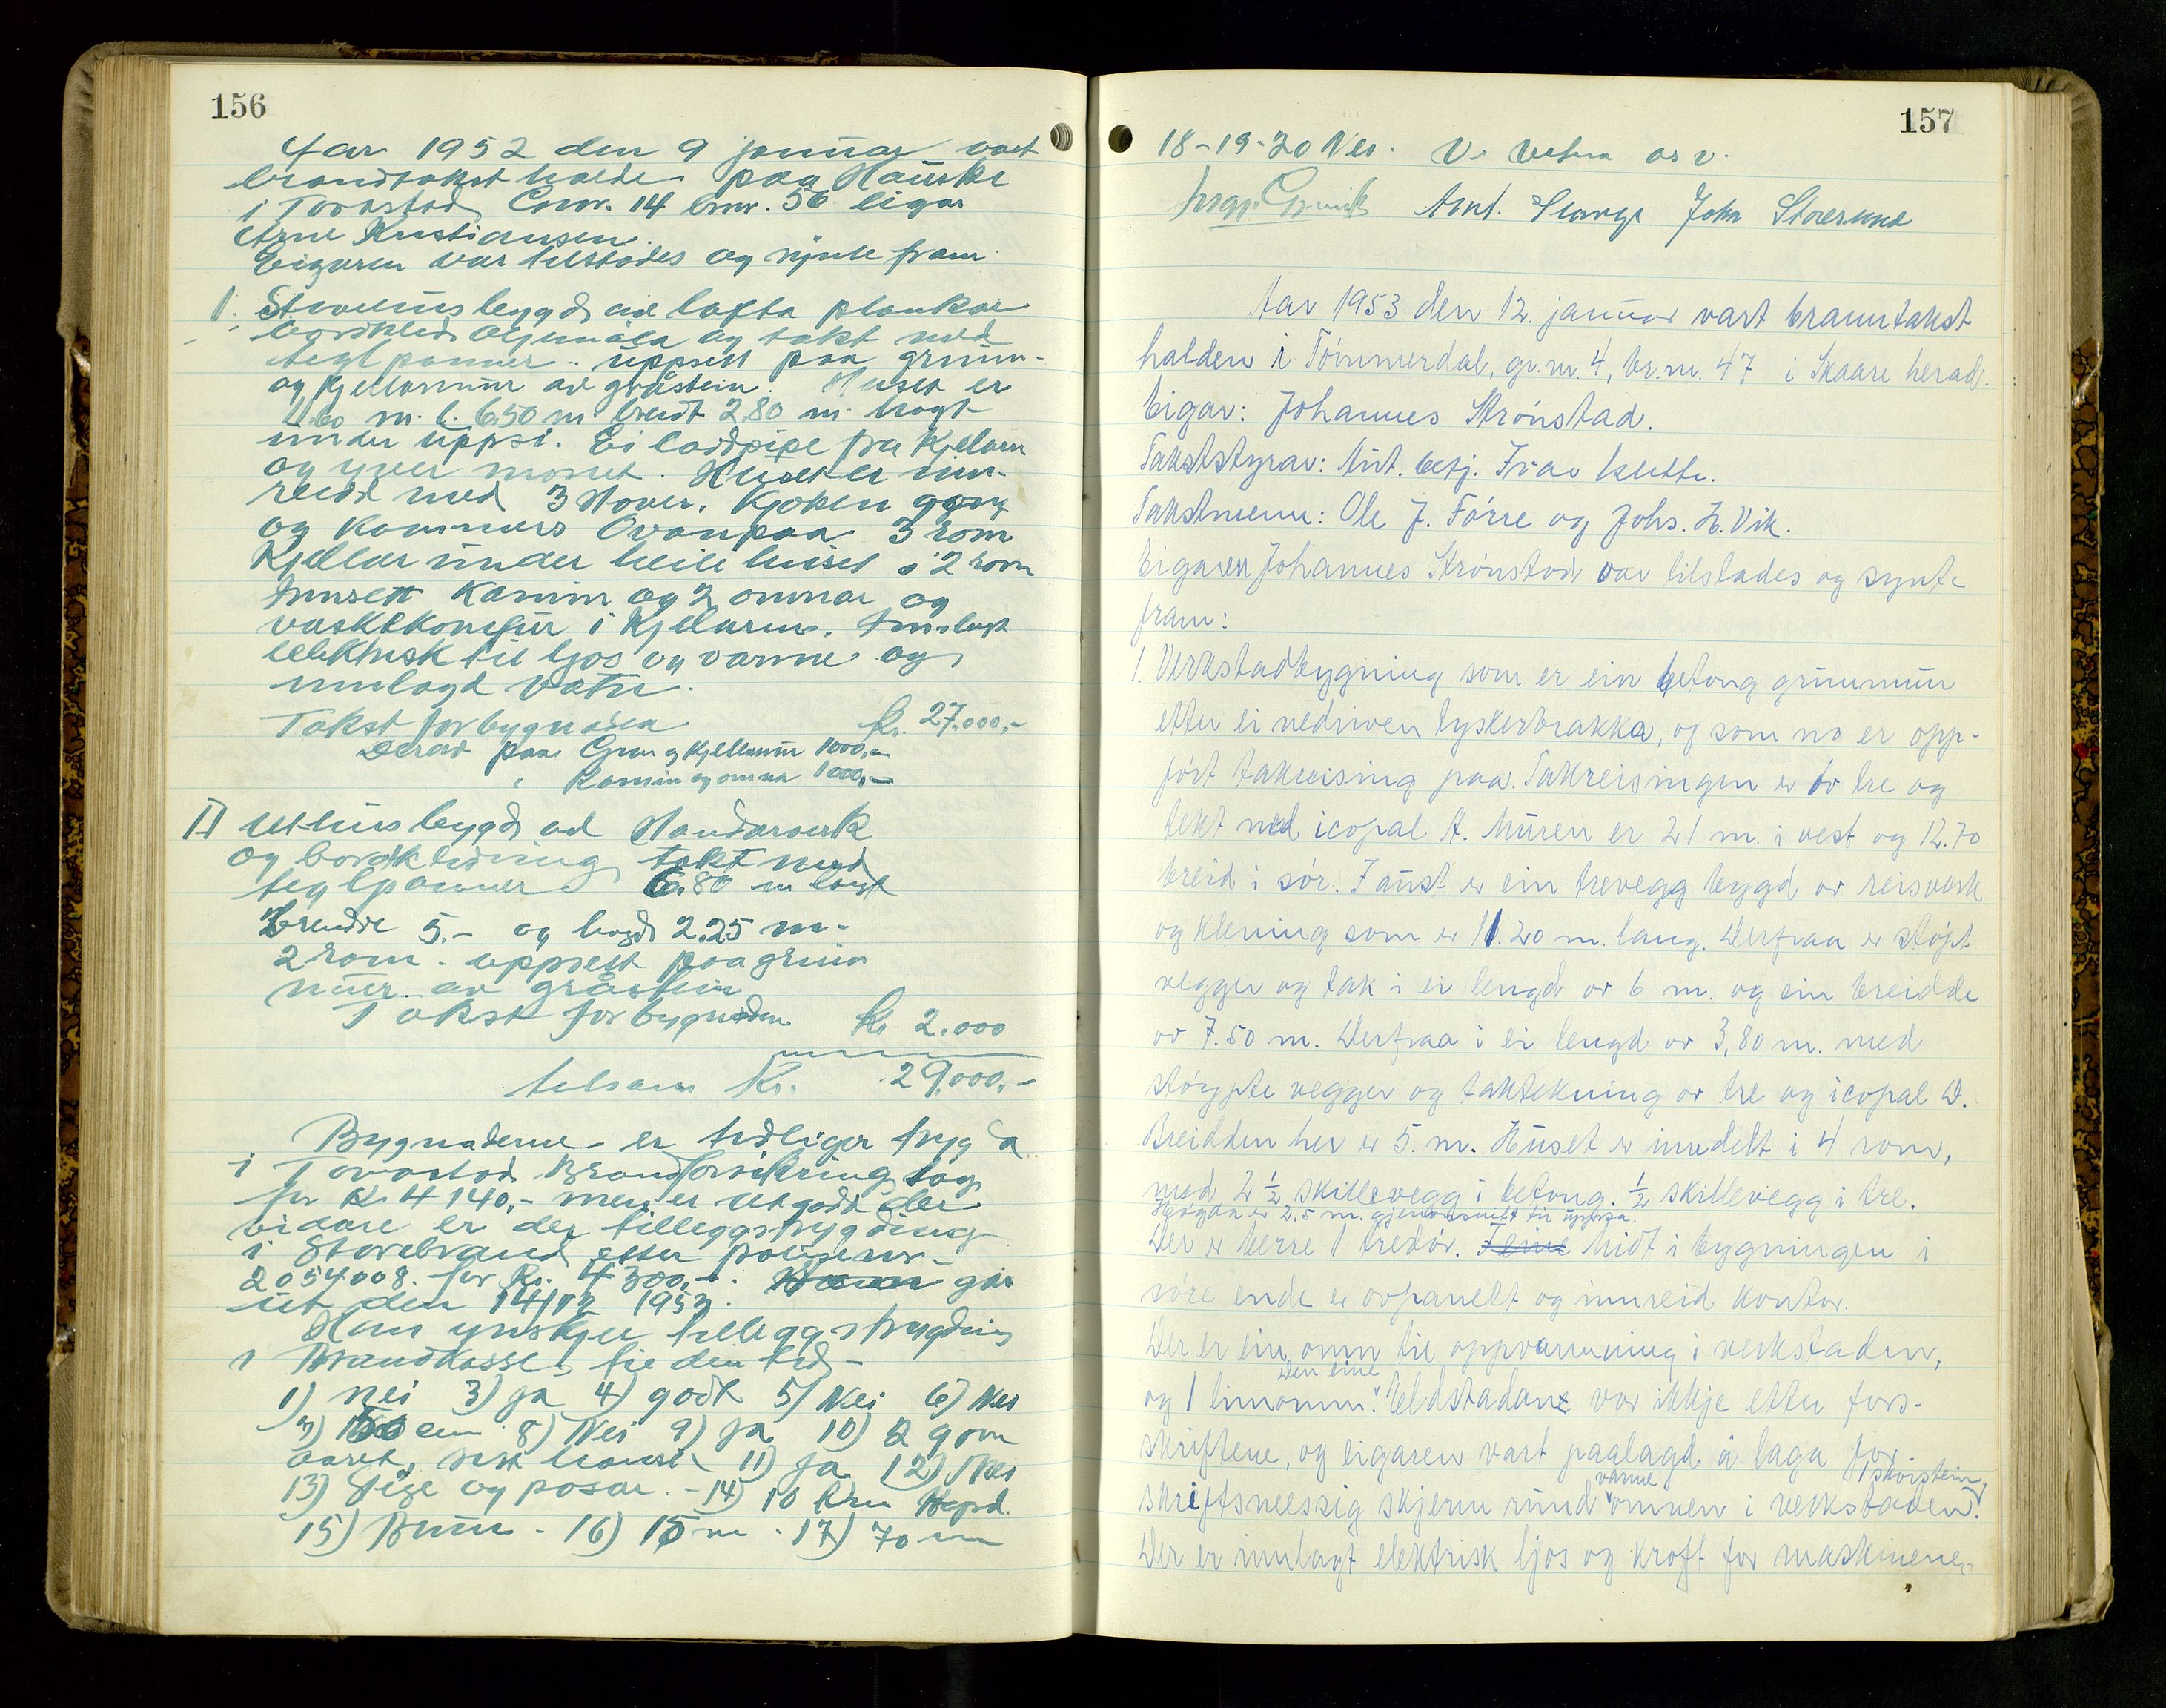 156
Aar 1952 den 9 januar vart
brandtakst halde paa Hauske
i Torvastad Gnr. 14 bnr. 56 eigar
Arne Kristiansen.
Eigaren var tilstades og synte fram
1. Stovehus bygd av lafta plankar
bordkled oljemåla og takt med
teglpanner. uppsett paa grunn-
og kjellarmur av gråstein. Huset er
11.60 m. l. 6.50 m breidt 2,80 m. høgt
under uppsi. Ei loddpipe fra kjellaren
og yver mønet. Huset er inn-
reidd med 3 stover. kjøken gong
og kammers Ovanpaa 3 rom
Kjellar under heile huset i 2 rom
Innsett kamin og 2 omnar og
vaskekomfur i kjellaren. Innlagt
elektrisk til ljos og varme og
innlagd vatn.
Takst for bygnaden kr. 27.000,-
Derav paa Grun og kjellarmur 1000,-
" Kamin og omnar 1000,-
II Uthus bygd av standarverk
og bordkledning takt med
teglpanner 6.80 m langt
breidde 5.- og høgd 2.25 m.
2 rom. uppsett paa grunn
mur av gråstein
Takst for bygnaden kr 2.000
tilsam Kr. 29.000.-
Bygnaderne er tidligere trygda
i Torvastad Brandforsikringslag
for kr 4140,- men er utgått der
vidare er der tilleggstrygding
i Storebrand etter polisenr.
2054008. for Kr. 4300.-. går
ut den 14/12 1953.
Han ynskjer tilleggstrygding
i Brandkasse fie den tid -
1) nei 3) ja 4) godt 5) Nei 6) Nei
7) 50 cm 8) Nei 9) Ja 10) 2 gom
aaret, sist haust 11) Ja 12) Nei
13) Stige og pøsar. - 14) 10 Km Hgsd.
15) Brun - 16) 15 m - 17) 70 m
157
18-19-20 Nei. V. Vetna os v.
John Storesund
Aar 1953 den 12. januar vart branntakst
halden i Tømmerdal, gr.nr. 4, br.nr. 47 i Skaare herad.
Eigar: Johannes Strønstad.
Takststyrar: Aut. betj. Ivar Klette.
Takstmenn: Ole J. Førre og Johs. H. Vik.
Eigaren Johannes Strønstad var tilstades og synte
fram:
1. Verkstadbygning som er ein betong grunnmur
etter ei nedriven tyskerbrakka, og som no er opp-
ført takreising paa. Takreisingen er av tre og
tekt med icopal A. Muren er 21 m. i vest og 12.70
breid i sør. I aust er ein trevegg bygd or reisverk
og klening som er 11.20 m. lang. Derfraa er støpt
vegger og tak i ei lengd or 6 m. og ein breidde
or 7.50 m. Derfraa i ei lengd or 3,80 m. med
støypte vegger og taktekning or tre og icopal D.
Breidden her er 5. m. Huset er inndelt i 4 rom,
med 2 1/2 skillevegg i betong. 1/2 skillevegg i tre.
Høgda er 2,5 m. gjennomsnitt til uppsa.
Der er berre 1 tredør. I eine Midt i bygningen i
søre ende er avpanelt og innreid kontor.
Der er ein omn til oppvarmning i verkstaden,
og 1 limomn. Den eine Eldstadane var ikkje etter fors-
skriftene, og eigaren vart paalagd å laga for-
skriftsmessig skjerm rund varme omnen i verkstaden. skorstein
Der er innlagt elektrisk ljos og kraft for maskinene.